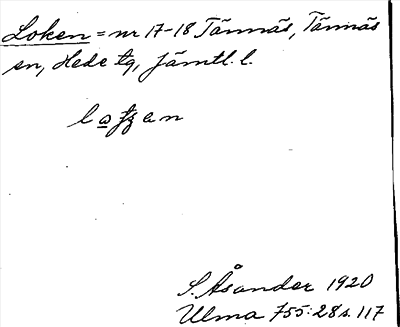 Loken = nr 17-18 Tännäs, Tännäs
sn, Hede tg, Jämtl. l.
S. Åsander 1920
Ulma 755:28 s. 117